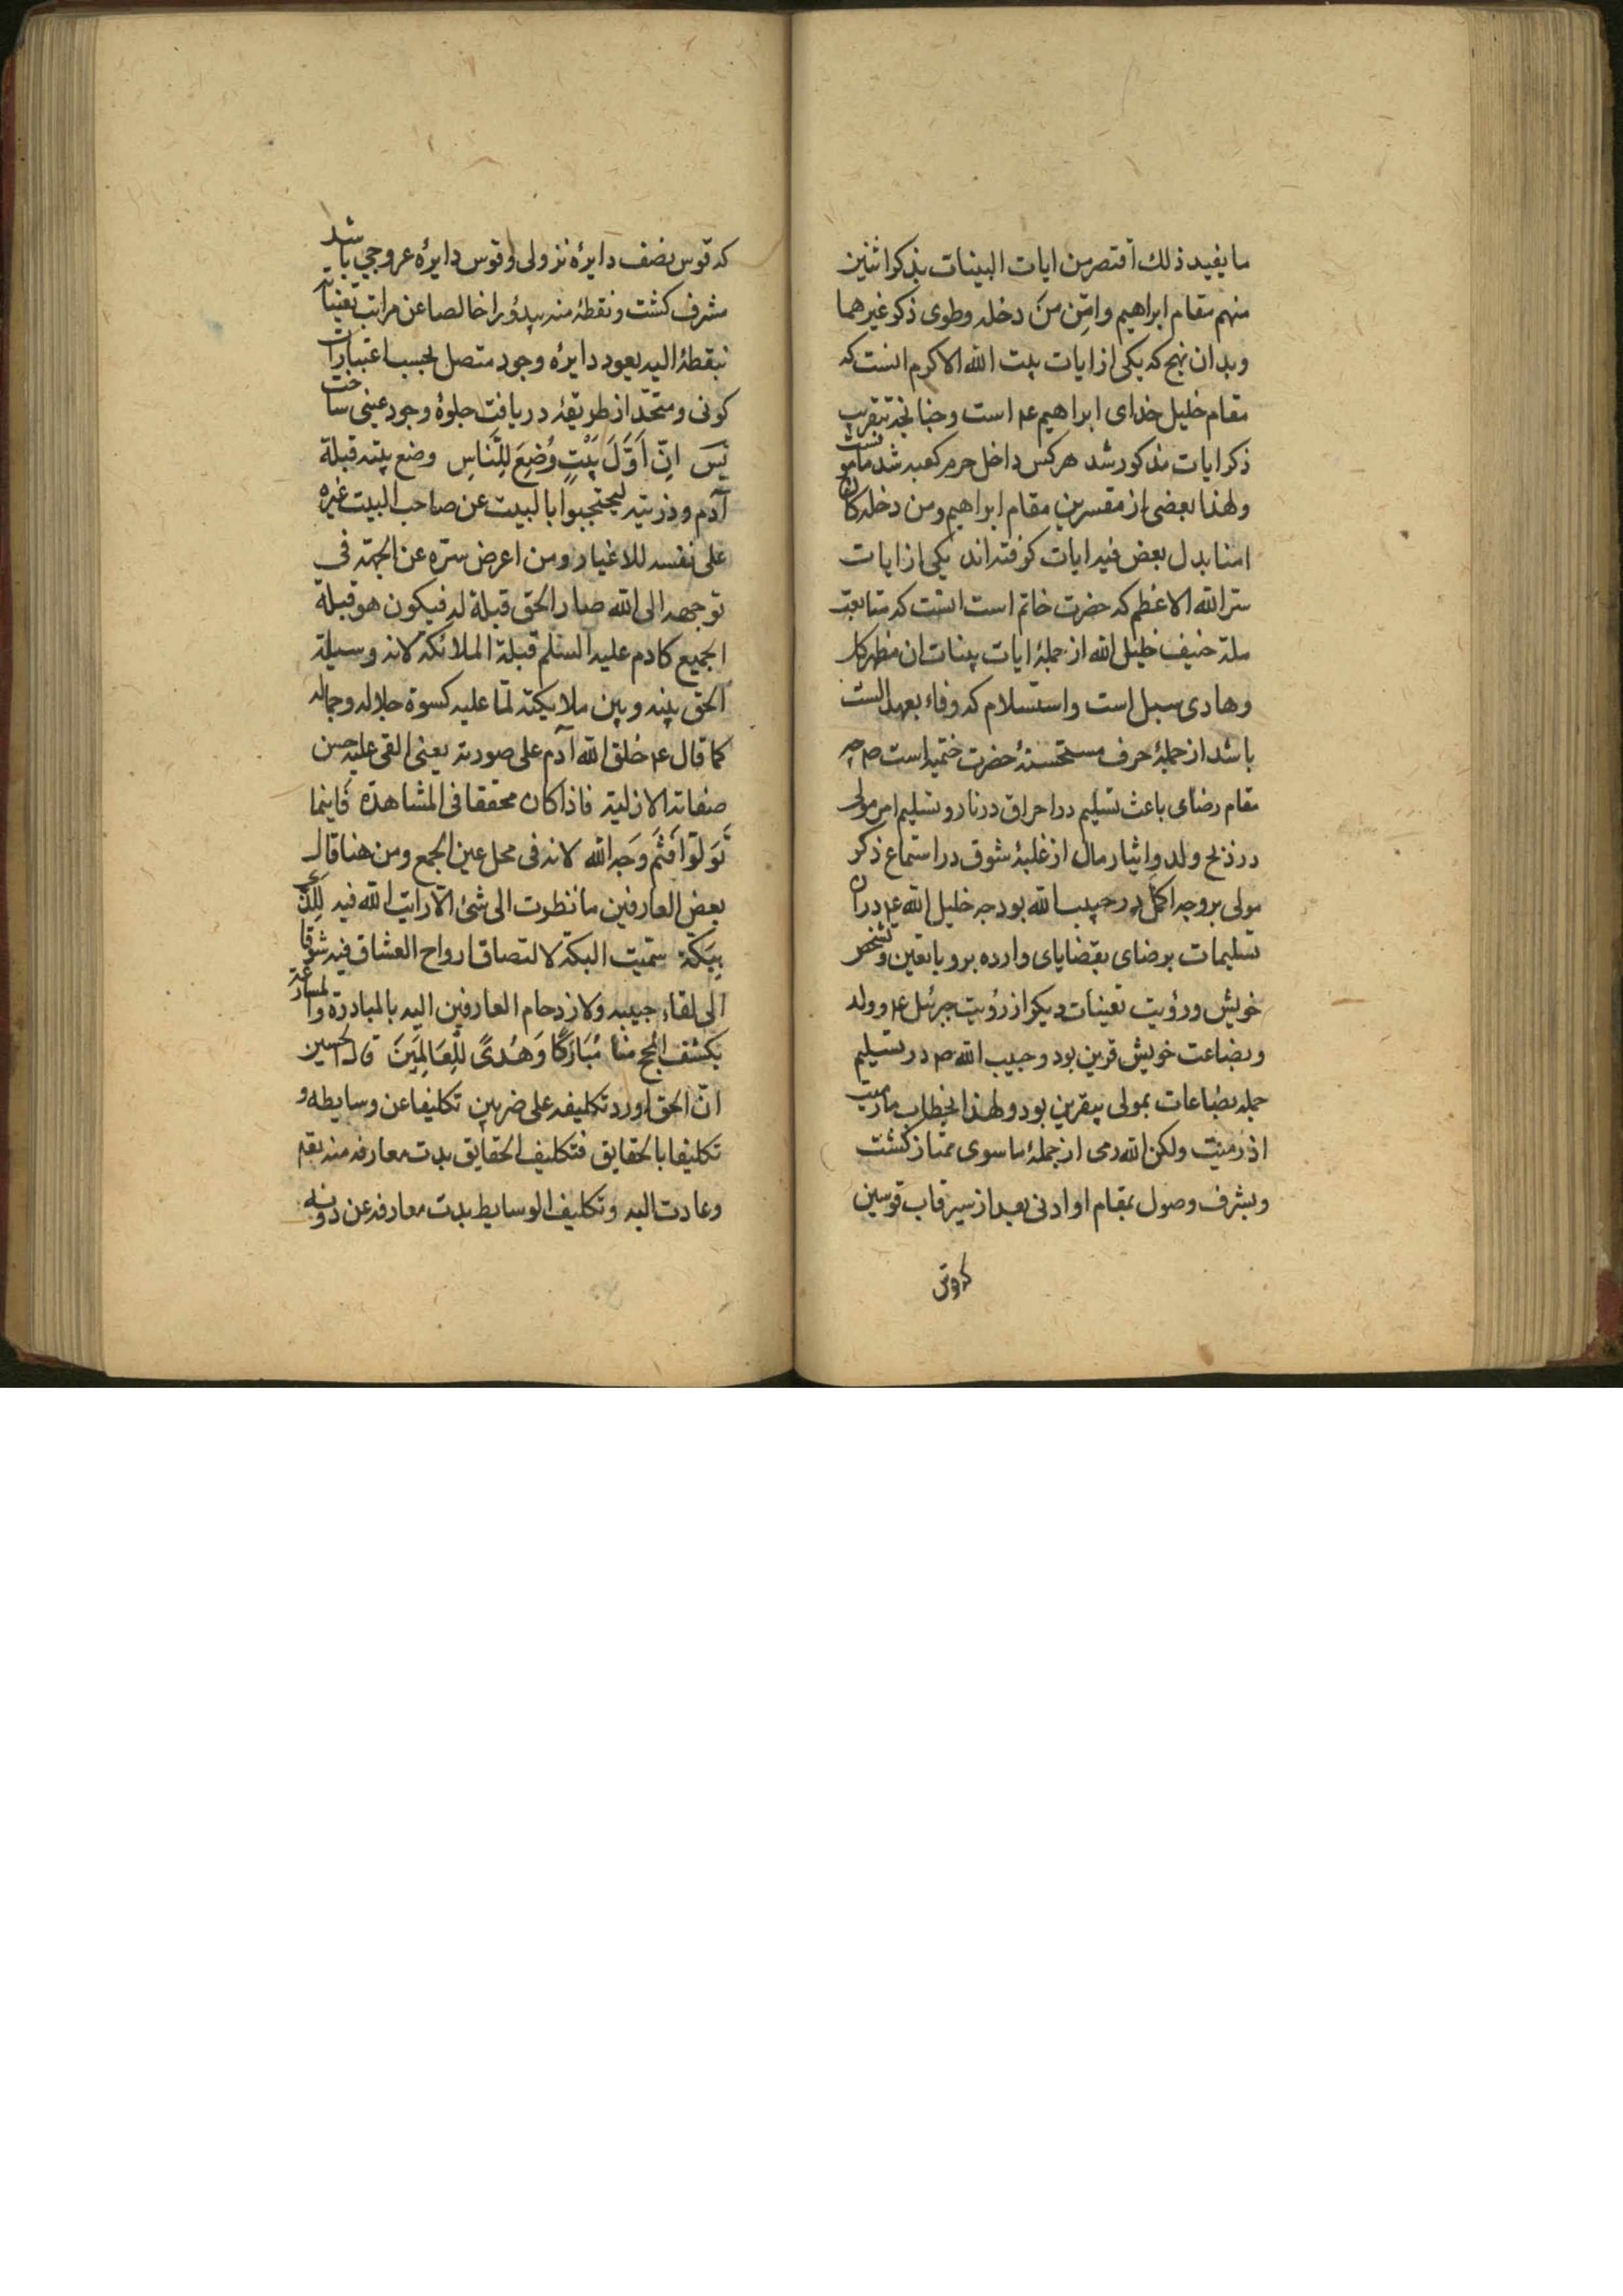 ما یفید ذلك اقتصر من ایات البینات بذکر اثنین
منهم مقام ابراهیم وامن من دخله وطوی ذکر غیرهما
وبدان نهج که یکی از ایات بیت الله الاکرم انست که
مقام خلیل خدای ابراهیم ع‍م است وچنانچه بتقریب
ذکر ایات مذکور شد هرکس داخل حرم کعبه شد مامونست
ولهذا بعضی از مفسرین مقام ابراهیم ومن دخله کان
امنا بدل بعض فیه ایات کرفته اند یکی از ایات
سر الله الاعظم که حضرت خاتم است انست که متابعت
ملة حنیف خلیل الله از جملهٔ ایات بینات ان مظهر کل
وهادی سبل است واستسلام که وفاء بعهد الست
باشد از جملهٔ حرف مستحسنهٔ حضرت ختمیه است ص‍م چه
مقام رضای باعث تسلیم در احراق در نار وتسلیم امر مولی
در ذبح ولد وایثار مال از غلبهٔ شوق در استماع ذکر
مولی بر وجه اکمل در حبیب الله بود چه خلیل الله ع‍م دران
تسلیمات برضای بقضایای وارده برو با تعین وتشخص
خویش ورؤیت تعینات دیکر از رؤیت جبرئیل ع‍م وولد
وبضاعت خویش قرین بود وحبیب الله ص‍م در تسلیم
جمله بضاعات بمولی بیقرین بود ولهذا بخطاب ما رمیت
اذ رمیت ولکن الله رمی از جملهٔ ما سوی ممتاز کشت
وبشرف وصول بمقام او ادنی بعد از سیر قاب قوسین
که قوس
که قوس نصف دایرهٔ نزولی وقوس دایرهٔ عروجی باشد
مشرف کشت ونقطهٔ منه یبدؤ را خالصا عن مراتب تعیناته
بنقطهٔ الیه یعود دایرهٔ وجود متصل بحسب اعتبارات
کونی ومتحد از طریقهٔ دریافت جلوهٔ وجود عینی ساخت
پس اِنَّ اَوَّلَ بَیْتٍ وُضِعَ لِلنَّاسِ وضع بیته قبلة
آدم وذریته لیحتجبوا بالبیت عن صاحب البیت غیره
علی نفسه للاغیار ومن اعرض سره عن الجهة فی
توجهه الی الله صار الحق قبلة له فیکون هو قبلة
الجمیع کادم علیه السلم قبلة الملائکة لانه وسیلة
الحق بینه وبین ملایکته لما علیه کسوة جلاله وجماله
کما قال ع‍م خلق الله آدم علی صورته یعنی القی علیه حسن
صفاته الازلیة فاذا کان محققا فی المشاهدة فَاَینما
تَوَلّوا فَثَمَّ وَجه الله لانه فی محل عین الجمع ومن هنا قال
بعض العارفین ما نظرت الی شئ الا رایت الله فیه لَلَّذی
بِبَکّة سمیت البکة لالتصاق ارواح العشاق فیه شوقا
الی لقاء حبیبه ولازدحام العارفین الیه بالمبادرة والمسارعة
مُبَارَکًا وَهُدیً لِلْعَالَمِینَ قال الحسین
ان الحق اورد تکلیفه علی ضربین تکلیفا عن وسایطه و
تکلیفا بالحقایق فتکلیف الحقایق بدت معارفه منه
وعادت الیه وتکلیف الوسایط بدت معارفه عن دونه